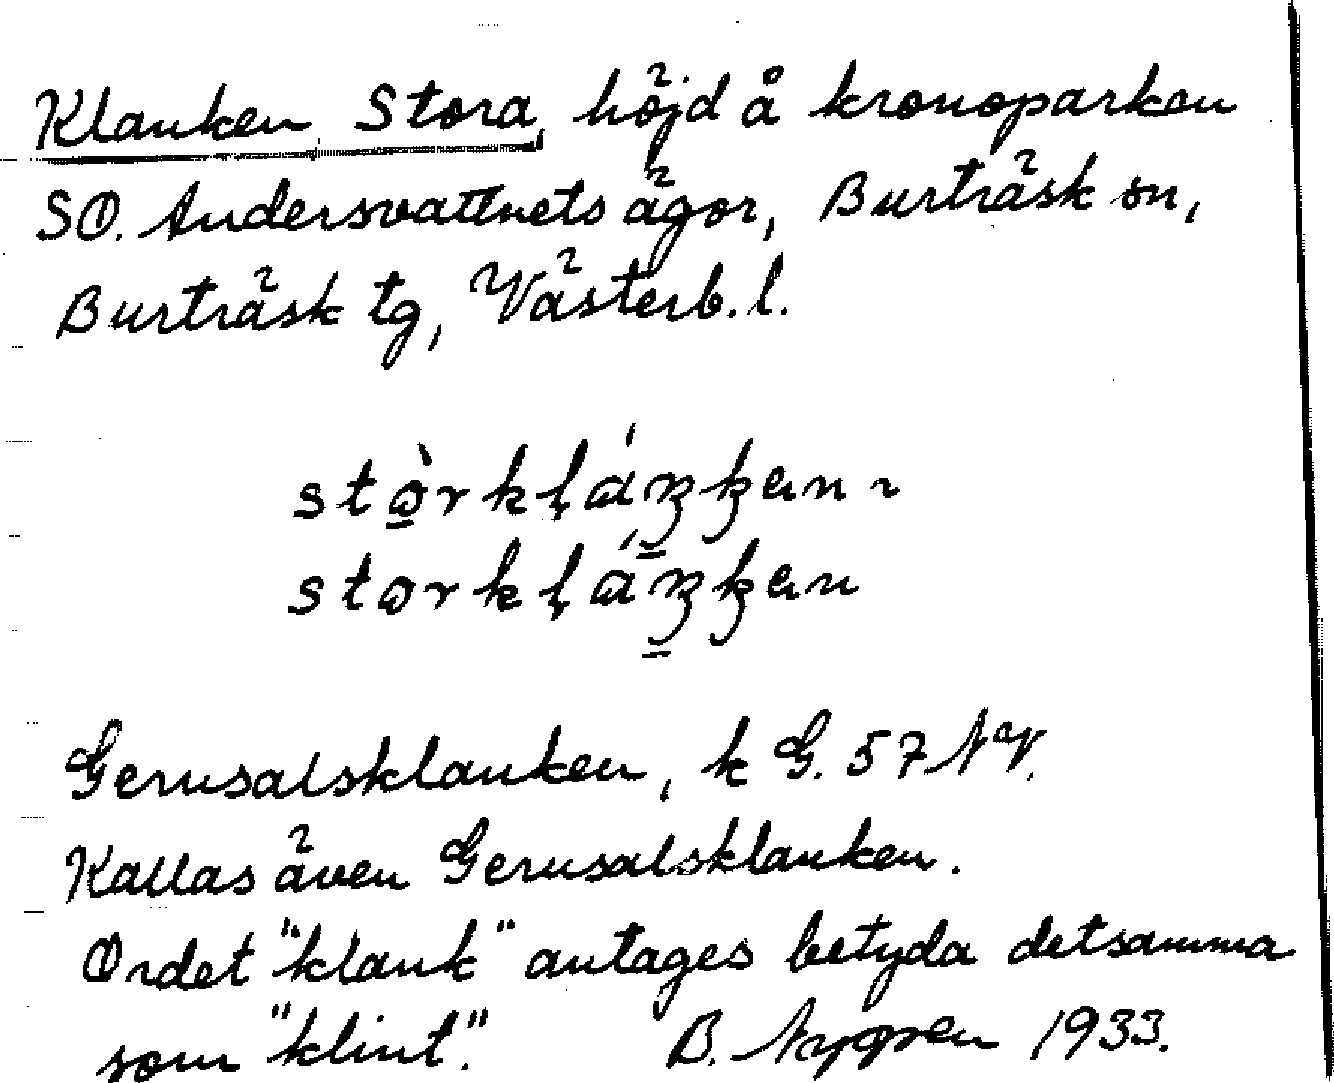 Klanken, Stora, höjd å kronoparken
SO. Andersvattnets ägor, Burträsk sn,
Burträsk tg, Västerb. l.
Gerusalsklanken, k G. 57 NV.
Kallas även Gerusalsklanken.
Ordet "klank" antages betyda detsamma
som "klint". B. Nygren 1933.